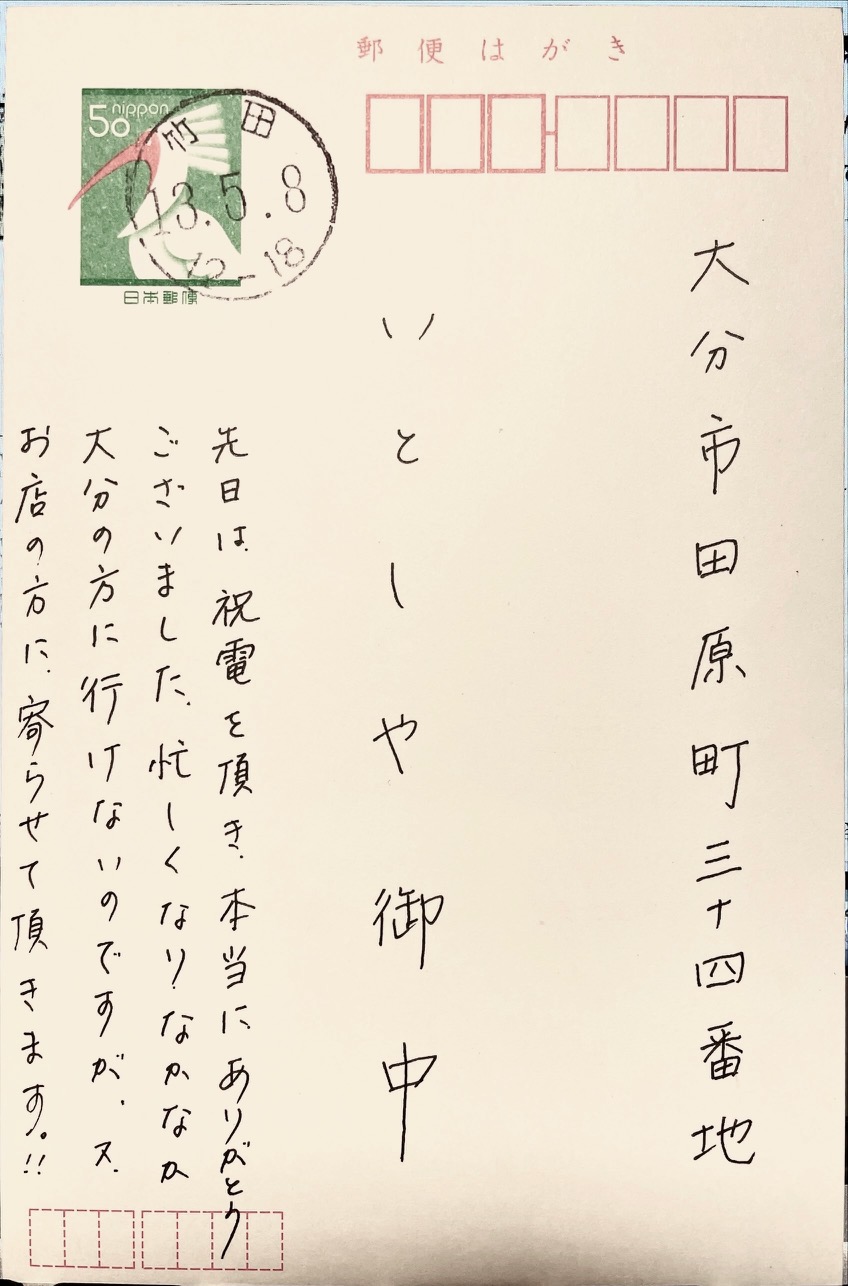 郵便はがき
50 nippon
竹田
13.5.8
12-18
日本郵便
大分市田原町三十四番地
いとしや 御中
先日は、祝電を頂き、本当にありがとう
ございました。忙しくなり、なかなか
大分の方に行けないのですが、又、
お店の方に、寄らせて頂きます。!!